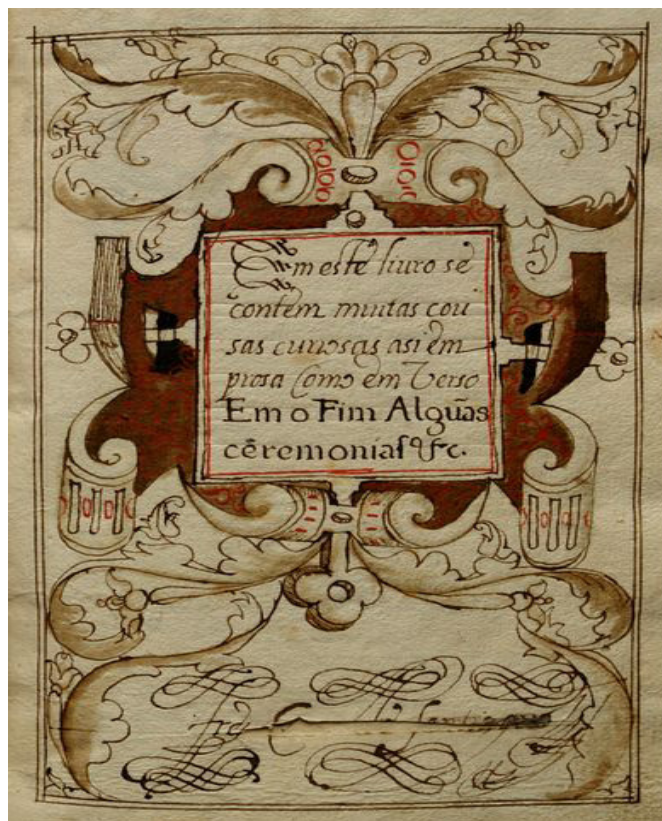 Em este liuro se
contem muitas cou
sas curiosas asi em
prosa Como em Verso
Em o Fim Algũas
cẽremonias &c.